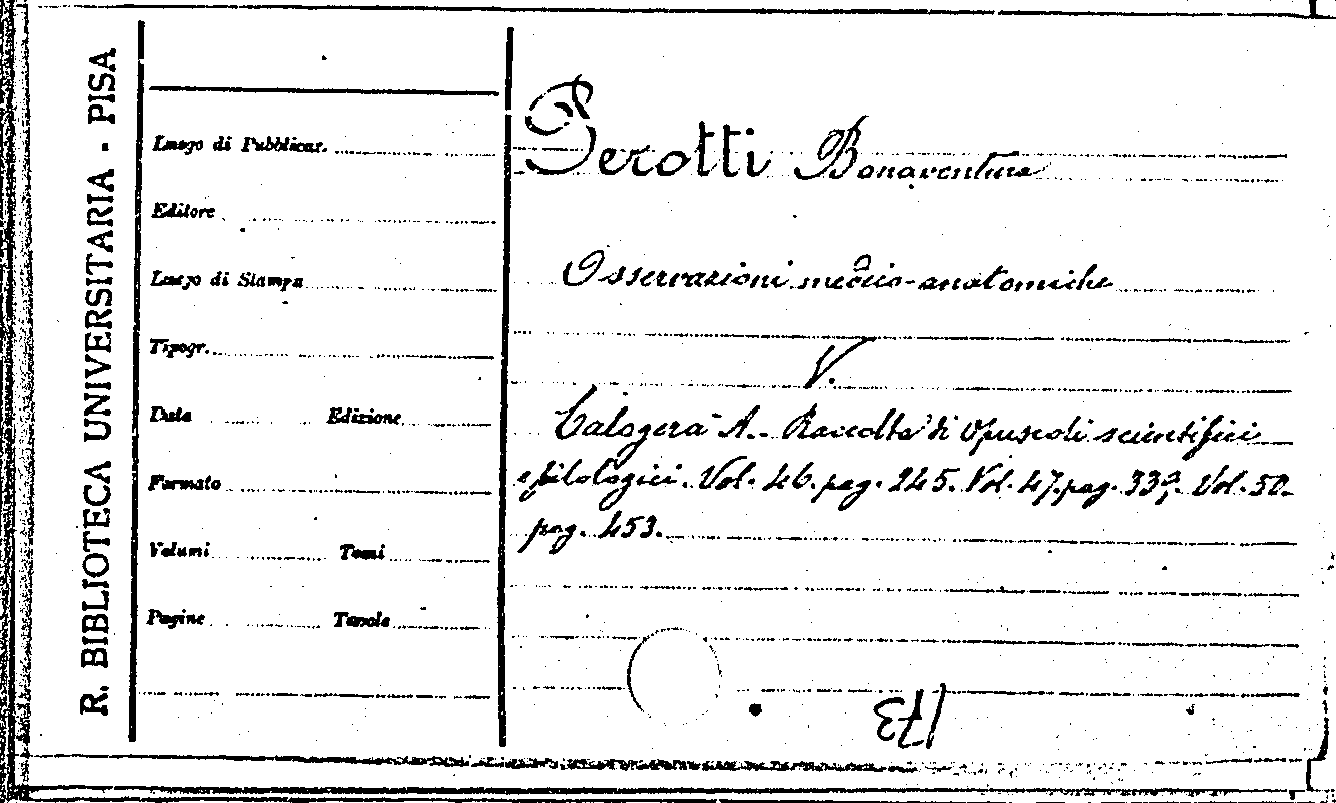 R. BIBLIOTECA UNIVERSITARIA - PISA
Luogo di Pubblicaz.
Editore
Luogo di Stampa
Tipogr.
Data Edizione
Formato
Volumi Tomi
Pagine Tavole
Perotti Bonaventura
Osservazioni medico-anatomiche
V.
Calogerà A. Raccolta di Opuscoli scientifici
e filologici. Vol. 46. pag. 245. Vol. 47. pag. 339. Vol. 50.
pag. 453.
173